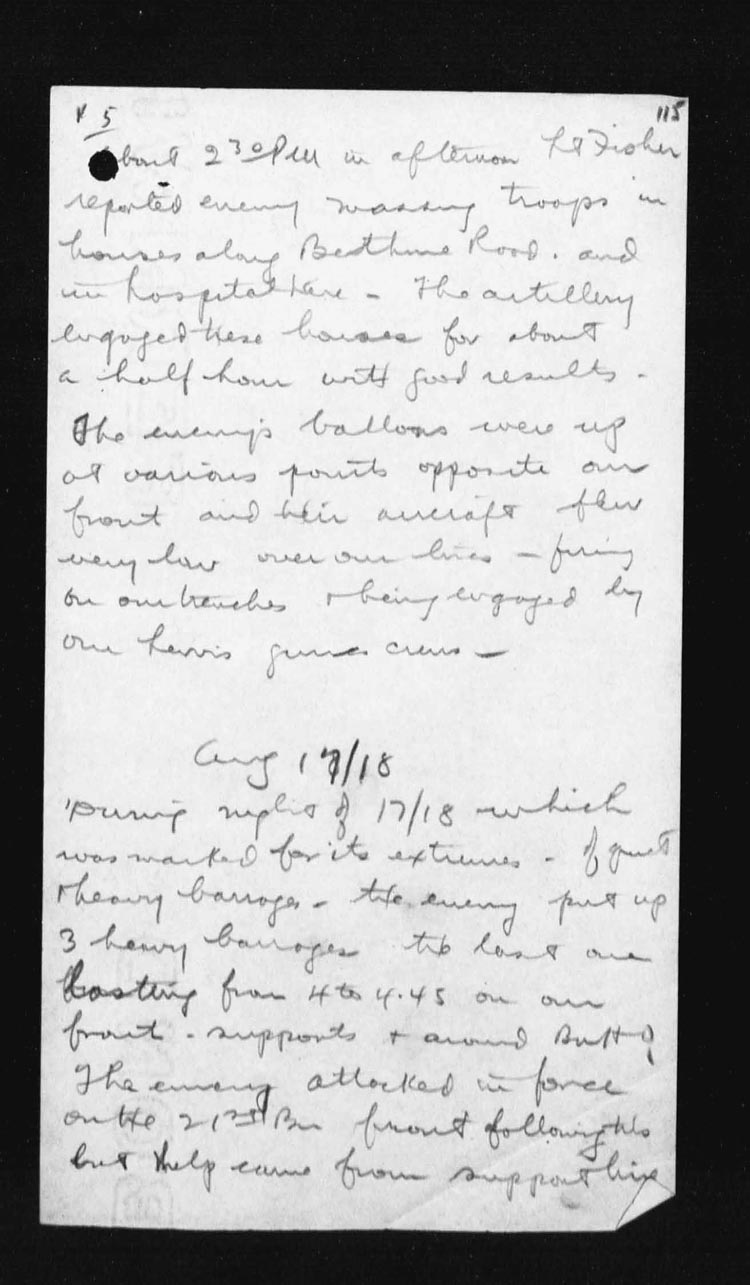 5
115
About 2 30 PM in afternoon Lt Fisher
reported enemy massing troops in
houses along Bethune Road. and
in hospital here - The artillery
engaged these houses for about
a half hour with good results.
The enemy's balloons were up
at various points opposite our
front and their aircraft flew
very low over our lines - firing
on our trenches & being engaged by
our Lewis guns crews -
Aug 17/18
During night of 17/18 which
was marked for its extremes - of quiet
& heavy barrages - the enemy put up
3 heavy barrages the last one
lasting from 4 to 4.45 on our
front - supports & around Batt HQ
The enemy attacked in force
on the 21st Bn front following this
but help came from support line